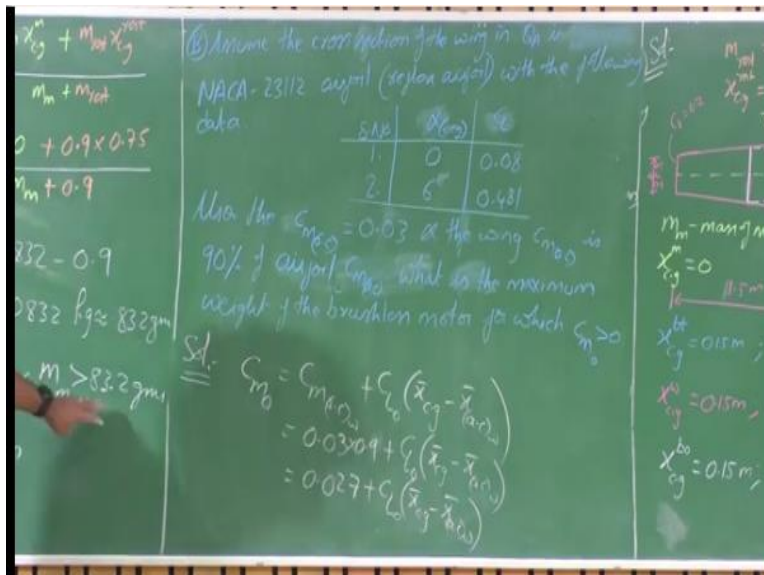 x^m_cg + m_rest x^rest_cg
m_m + m_rest
0 + 0.9 x 0.75
m_m + 0.9
832 - 0.9
0832 kg ≈ 832gm
m_m > 83.2 gms
(b) Assume the cross section of the wing in Qn is
NACA-23112 airfoil (reflex airfoil) with the following
data
S.No α(deg)
1. 0 0.08
2. 6° 0.481
Also the C_m(a.c) = 0.03 & the wing C_m(a.c) is
90% of airfoil C_m(a.c) what is the maximum
weight of the brushless motor for which C_m0 > 0
Sol:-
C_m0 = C_m(a.c)w + C_L0 (x̄_cg - x̄_(a.c)w)
= 0.03x0.9 + C_L0 (x̄_cg - x̄_(a.c)w)
= 0.027 + C_L0 (x̄_cg - x̄_(a.c)w)
Sol:-
m_rest
x^rest_cg =
m_m - mass of m
x^m_cg = 0
11.5m
x^bt_cg = 0.15m ;
x_cg = 0.15m,
x^bo_cg = 0.15m ;